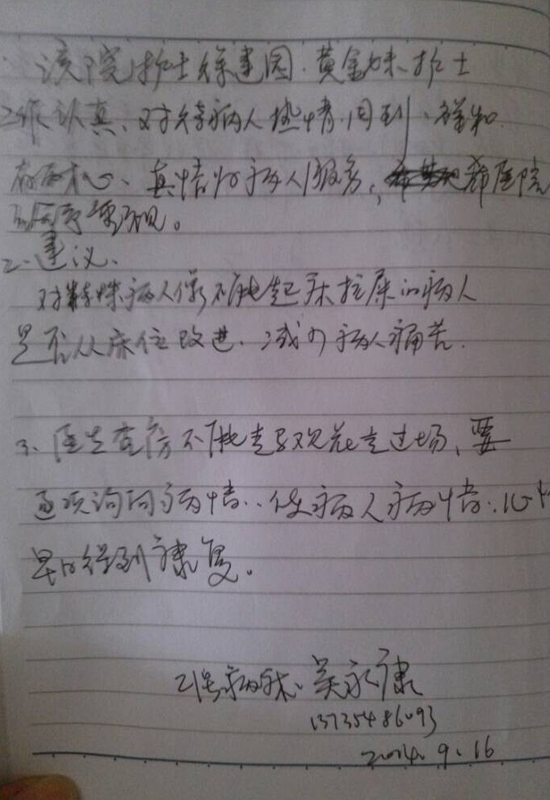 该院护士徐建园、黄金妹护士
工作认真、对待病人热情周到、祥和
有耐心、真情为病人服务，希医院
重视。
2、建议、
对特殊病人像不能起床拉尿的病人
是否从床位改进、减少病人痛苦.
3、医生查房不能走马观花走过场、要
逐项询问病情、使病人病情、心
早日得到康复。
吴永康
13735486093
2014.9.16